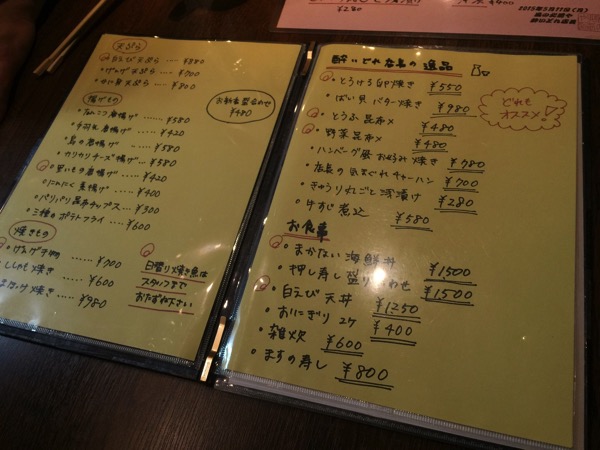 天ぷら
白えび天ぷら ..... ¥880
げんげ天ぷら ..... ¥700
かに身天ぷら ..... ¥800
揚げもの
お新香盛合わせ
¥480
唐揚げ ..... ¥580
手羽先唐揚げ ... ¥420
鳥の唐揚げ .. ¥580
カリカリチーズ揚げ ... ¥380
里いもの唐揚げ ... ¥420
にんにく素揚げ ... ¥400
パリパリ昆布チップス .... ¥300
三種のポテトフライ .... ¥600
焼きもの
げんげ干物 ..... ¥700
ししゃも焼き ..... ¥600
焼き ..... ¥980
日替り焼き魚は
スタッフまで
おたずね下さい
酔いどれ店長の逸品
どれも
オススメ!
とうけろ卵焼き ¥550
ばい貝バター焼き ¥780
とうふ昆布〆 ¥480
野菜昆布〆 ¥480
ハンバーグ風お好み焼き ¥780
店長の気まぐれチャーハン ¥700
きゅうり丸ごと浅漬け ¥280
牛すじ煮込 ¥580
お食事
まかない海鮮丼 ¥1500
押し寿し盛り合わせ ¥1500
白えび天丼 ¥1250
おにぎり 2ケ ¥400
雑炊 ¥600
ますの寿し ¥800
¥280
¥400
2015年5月11日(月)